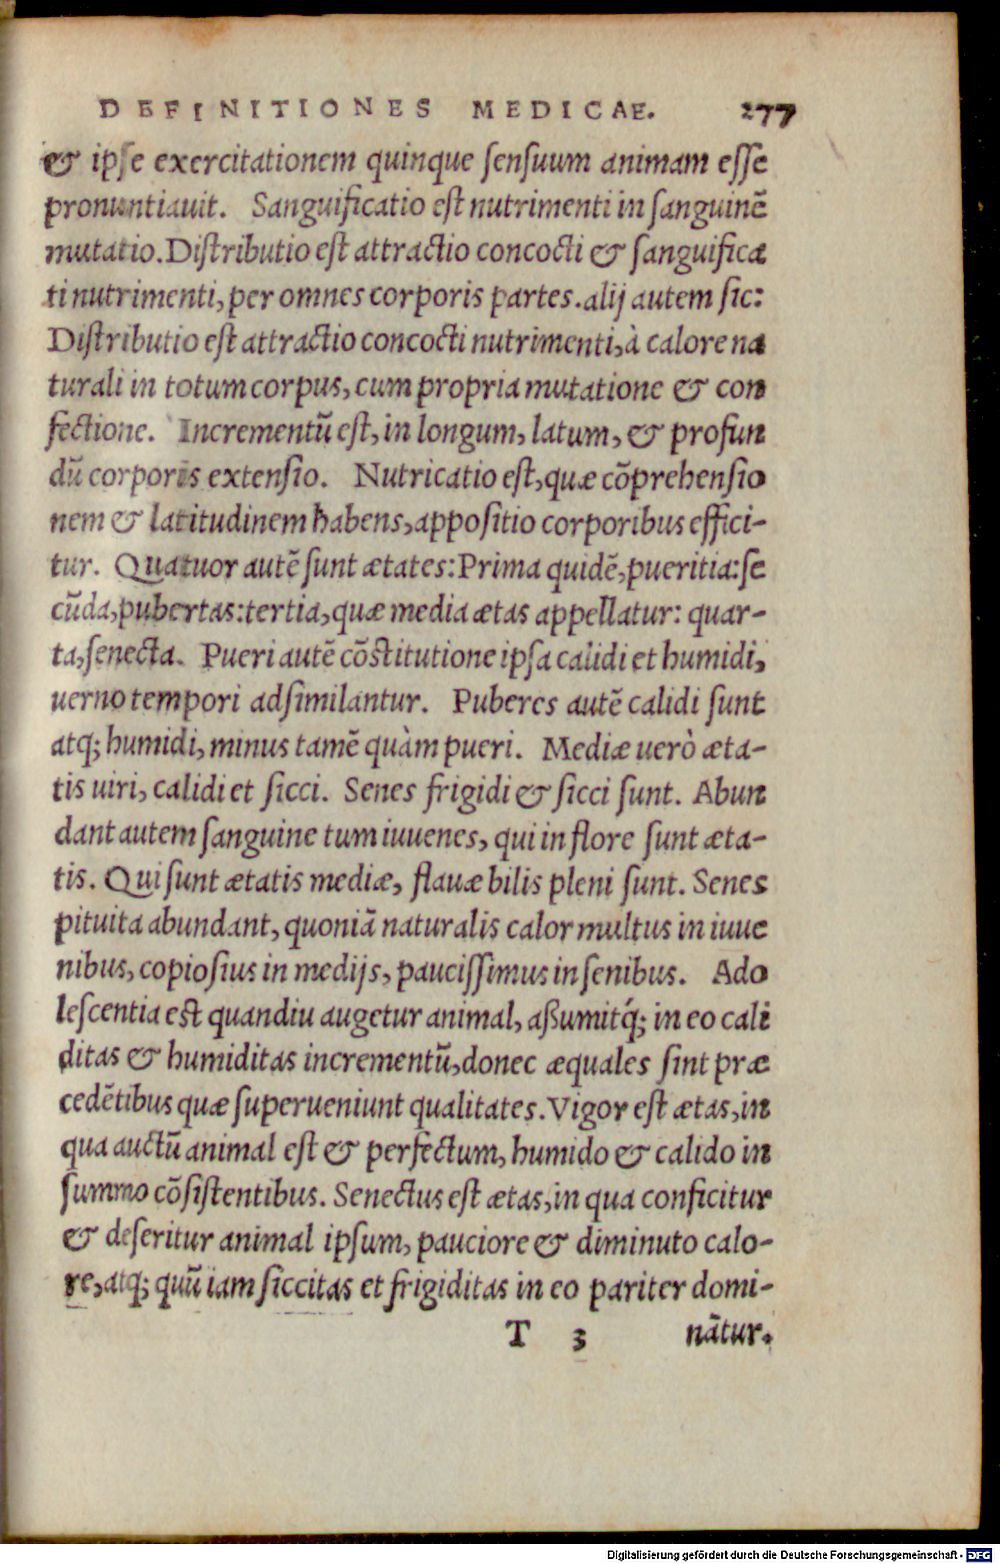 DEFINITIONES MEDICAE. 277
& ipſe exercitationem quinque ſenſuum animam eſſe
pronuntiauit. Sanguificatio eſt nutrimenti in ſanguinē
mutatio. Diſtributio eſt attractio concocti & ſanguifica
ti nutrimenti, per omnes corporis partes. alij autem ſic:
Diſtributio eſt attractio concocti nutrimenti, à calore na
turali in totum corpus, cum propria mutatione & con
fectione. Incrementū eſt, in longum, latum, & profun
dū corporis extenſio. Nutricatio eſt, quæ cōprehenſio
nem & latitudinem habens, appoſitio corporibus effici-
tur. Quatuor autē ſunt ætates: Prima quidē, pueritia: ſe
cūda, pubertas: tertia, quæ media ætas appellatur: quar-
ta, ſenecta. Pueri autē cōſtitutione ipſa calidi et humidi,
uerno tempori adſimilantur. Puberes autē calidi ſunt
atq; humidi, minus tamē quàm pueri. Mediæ uerò æta-
tis uiri, calidi et ſicci. Senes frigidi & ſicci ſunt. Abun
dant autem ſanguine tum iuuenes, qui in flore ſunt æta-
tis. Qui ſunt ætatis mediæ, flauæ bilis pleni ſunt. Senes
pituita abundant, quoniā naturalis calor multus in iuue
nibus, copioſius in medijs, pauciſſimus in ſenibus. Ado
leſcentia eſt quandiu augetur animal, aßumitq́; in eo cali
ditas & humiditas incrementū, donec æquales ſint præ
cedētibus quæ ſuperueniunt qualitates. Vigor eſt ætas, in
qua auctū animal eſt & perfectum, humido & calido in
ſummo cōſiſtentibus. Senectus eſt ætas, in qua conficitur
& deſeritur animal ipſum, pauciore & diminuto calo-
re, atq; quū iam ſiccitas et frigiditas in eo pariter domi-
T 3 nātur.
Digitalisierung gefördert durch die Deutsche Forschungsgemeinschaft - DFG